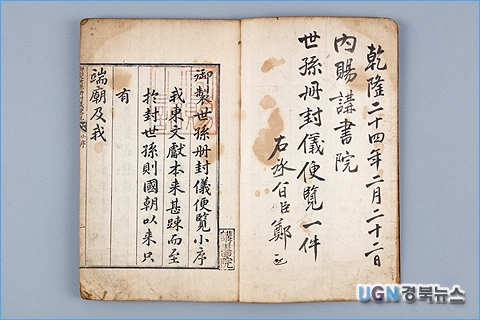 乾隆二十四年二月二十二日
內賜講書院
世孫冊封儀便覽一件
右承旨臣鄭
御製世孫冊封儀便覽小序
我東文獻本来甚踈而至
扵封世孫則國朝以来只
有
端廟及我
講書院
UGN경북뉴스